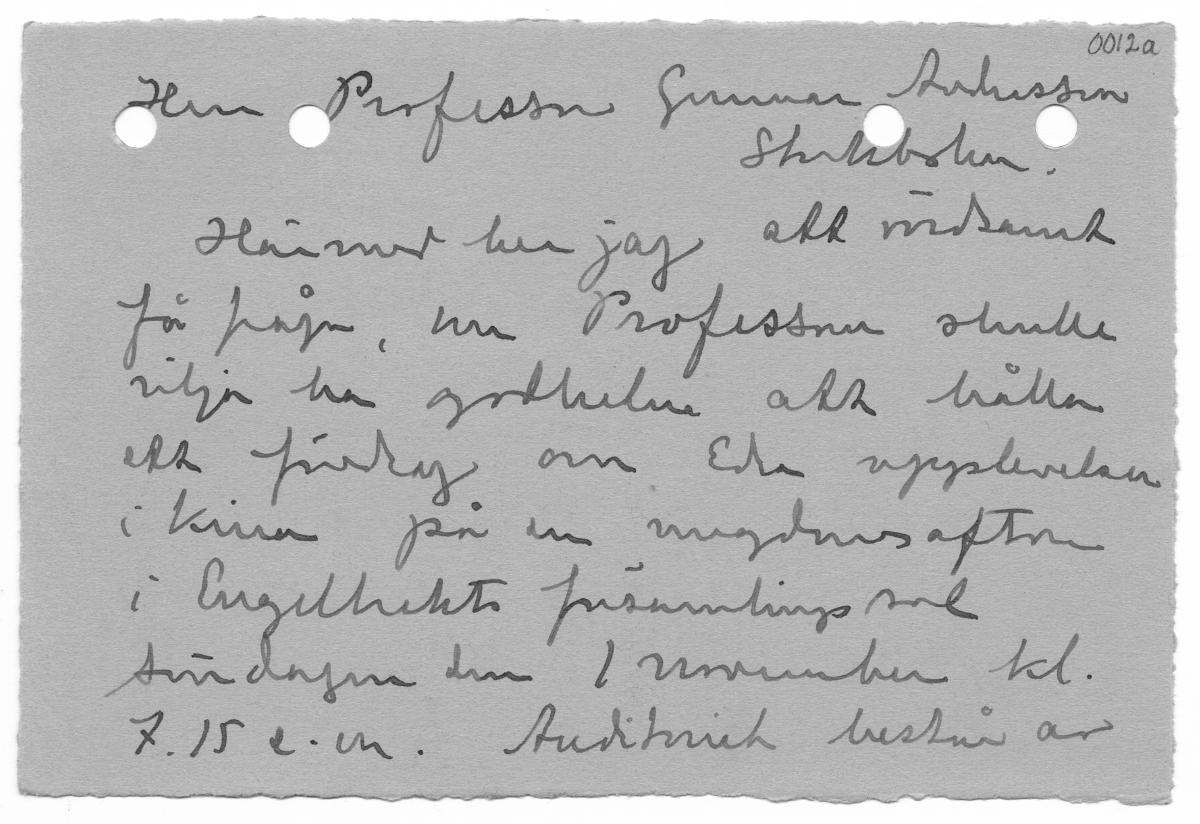 0012a
Herr Professor Gunnar Andersson
Stockholm.
Härmed ber jag att vördsamt
få fråga, om Professorn skulle
vilja ha godheten att hålla
ett föredrag om Edra upplevelser
i Kina på en ungdomsafton
i Engelbrekts församlingssal
söndagen den 1 november kl.
7.15 e.m. Auditoriet består av